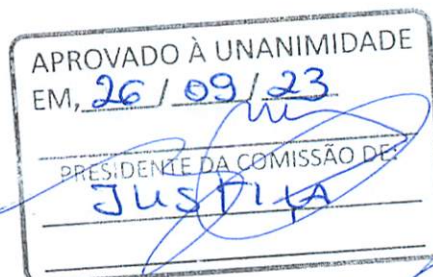 APROVADO À UNANIMIDADE
EM, 26 / 09 / 23
PRESIDENTE DA COMISSÃO DE:
JUSTIÇA